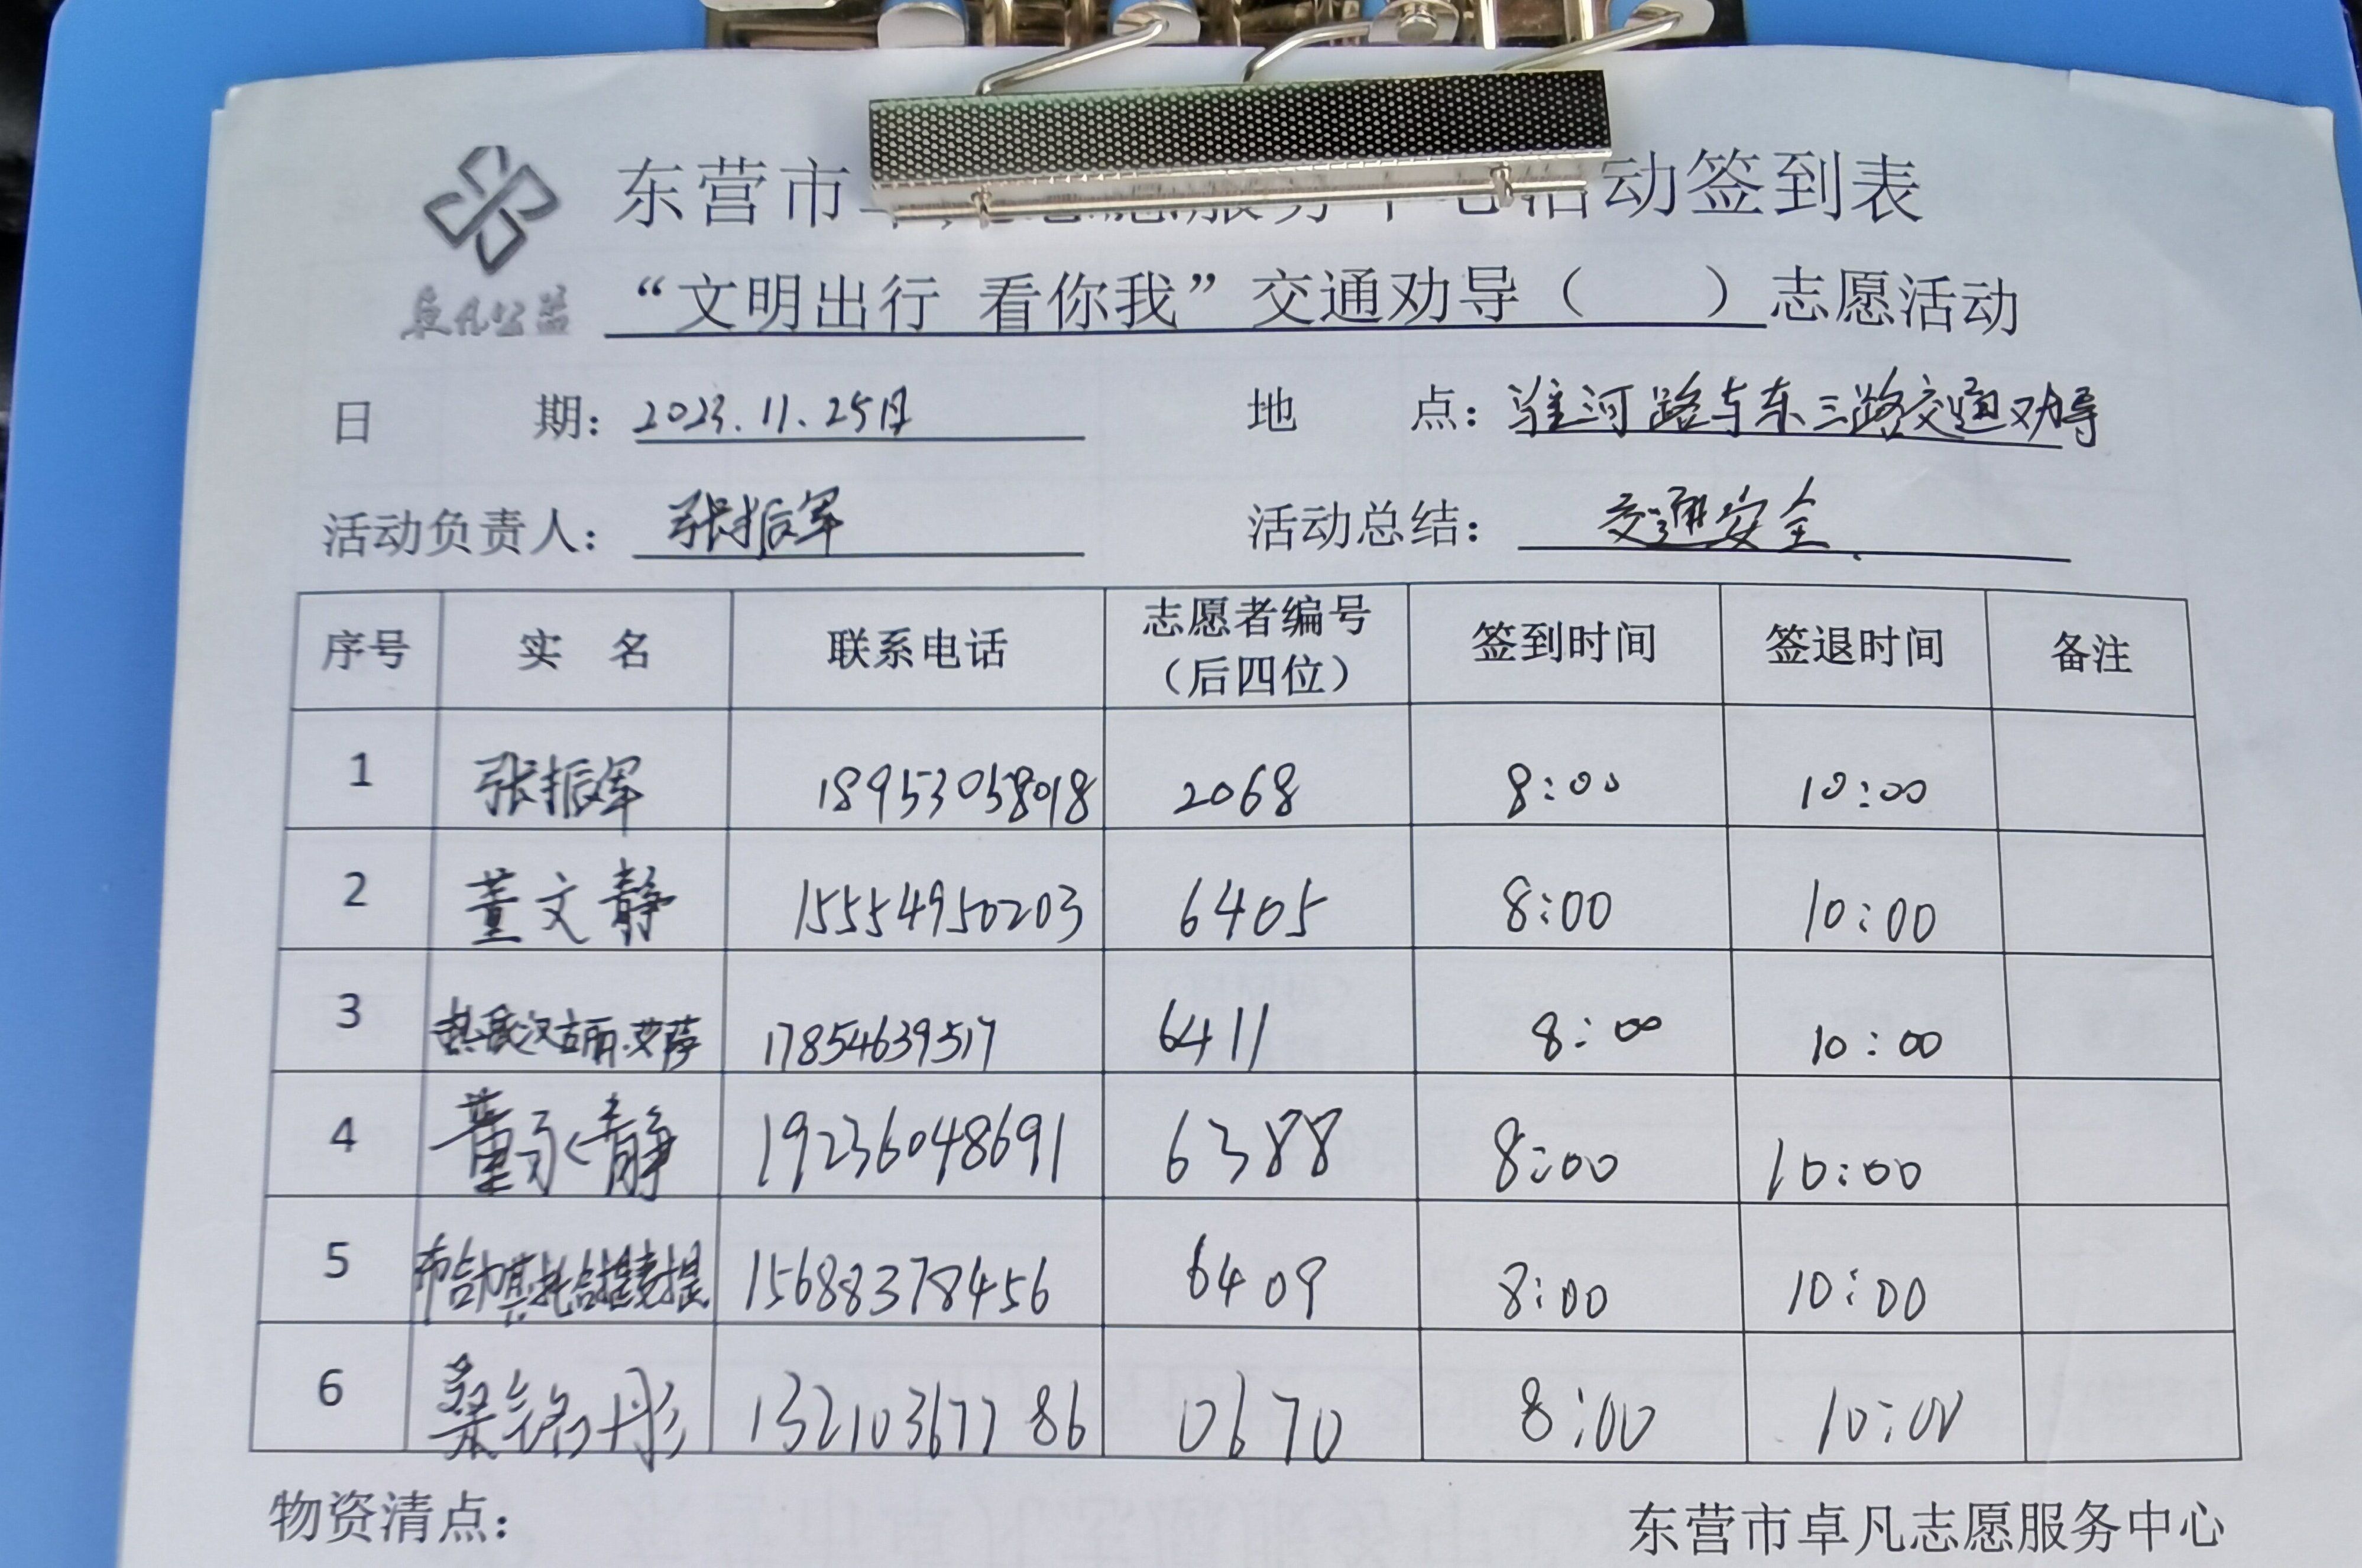 东营市 服务中心活动签到表
卓凡公益
“文明出行 看你我”交通劝导（ ）志愿活动
日 期：2023.11.25日 地 点：淮河路与东三路交通劝导
活动负责人：张振军 活动总结：交通安全.
序号 实 名 联系电话 志愿者编号（后四位） 签到时间 签退时间 备注
1 张振军 18953058018 2068 8:00 10:00
2 董文静 15554950203 6405 8:00 10:00
3 古丽·艾 17854639517 6411 8:00 10:00
4 董永静 19236048691 6388 8:00 10:00
5 布合力其·托合提麦提 15688378456 6409 8:00 10:00
6 桑铭彤 13210367786 0670 8:00 10:00
物资清点： 东营市卓凡志愿服务中心